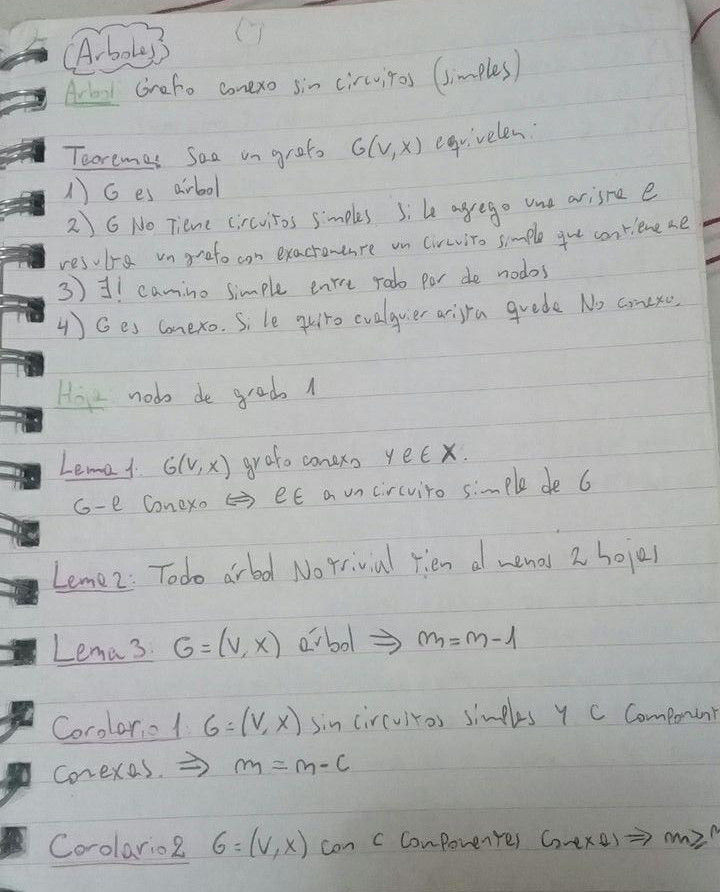 (Arboles)
Arbol: Grafo conexo sin circuitos (simples)
Teorema: Sea un grafo G(V,X) equivalen:
1) G es árbol
2) G No Tiene circuitos simples si le agrego una arista e
resulta un grafo con exactamente un circuito simple que contiene a e
3) ∃! camino simple entre todo par de nodos
4) G es conexo. Si le quito cualquier arista queda No conexo.
Hoja: nodo de grado 1
Lema 1: G(V,X) grafo conexo y e ∈ X.
G-e conexo ⇔ e ∈ a un circuito simple de G
Lema 2: Todo árbol No trivial tien al menos 2 hojas
Lema 3: G=(V,X) árbol ⇒ m=n-1
Corolario 1: G=(V,X) sin circuitos simples y C Component
conexas. ⇒ m=n-C
Corolario 2 G=(V,X) con c componentes conexas ⇒ m≥n